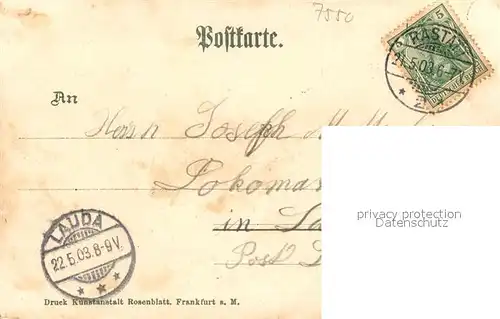 7550
Postkarte.
5 5
RAST
21.5.03.6-7
An
Herrn Joseph
Lokomo
in
Post
privacy protection
Datenschutz
LAUDA
22.5.03.8-9V.
Druck Kunstanstalt Rosenblatt, Frankfurt a. M.